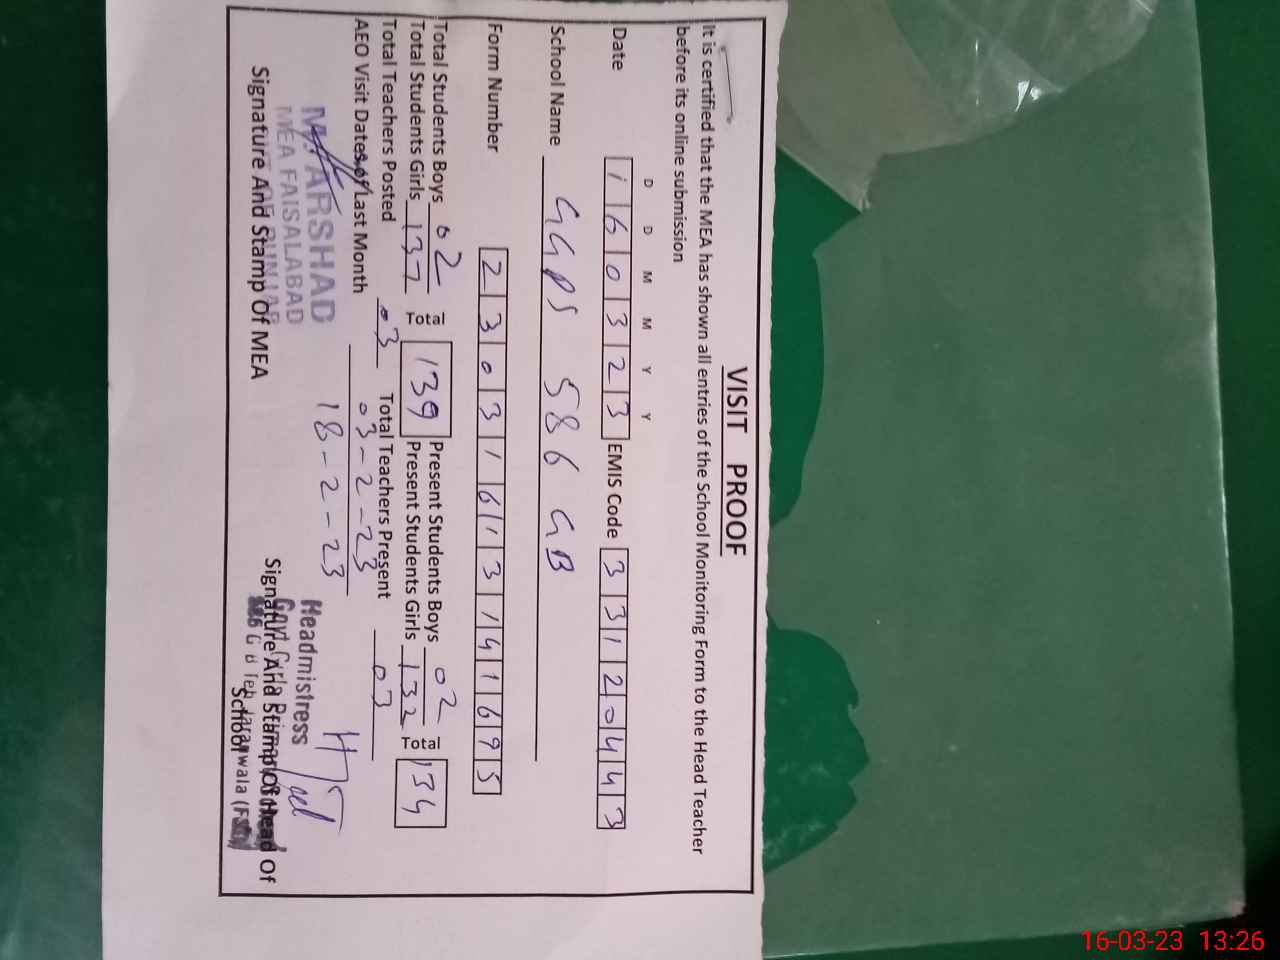 VISIT PROOF
It is certified that the MEA has shown all entries of the School Monitoring Form to the Head Teacher
before its online submission
D D M M Y Y
Date 160323 EMIS Code 33120443
School Name GGPS 586 GB
Form Number 23031613141695
Total Students Boys 02 Total 139 Present Students Boys 02 Total 134
Total Students Girls 137 Present Students Girls 132
Total Teachers Posted 03 Total Teachers Present 03
AEO Visit Dates of Last Month 03-2-23
18-2-23
M. ARSHAD
MEA FAISALABAD
Signature And Stamp Of MEA
Headmistress
Govt Girls
586 G B Teh Jaranwala
Signature And Stamp Of Head Of
School
16-03-23 13:26